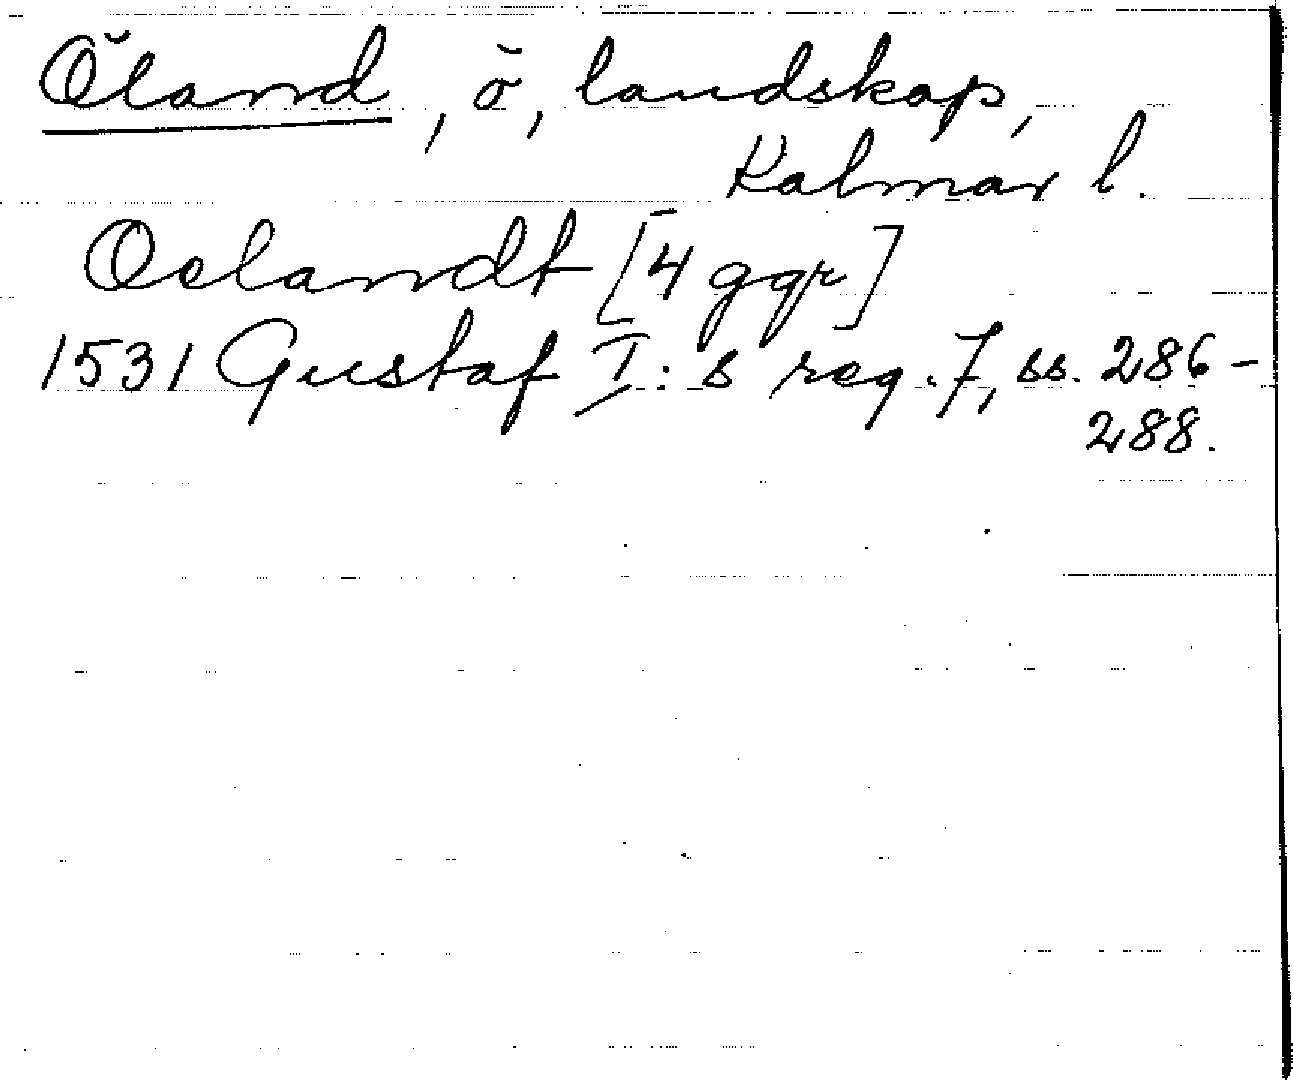 Öland, ö, landskap,
Kalmar l.
Oelandt [4 ggr]
1531 Gustaf I:s reg. 7, ss. 286-
288.